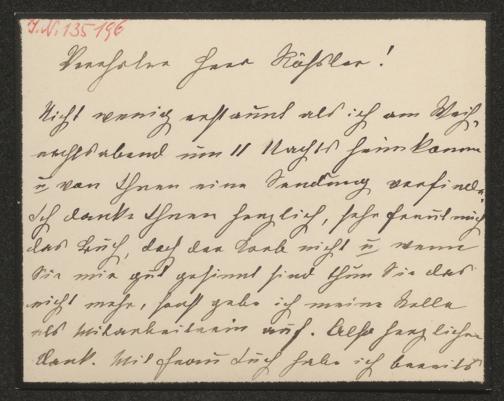 I.N. 135196
Verehrter Herr Rößler!
Nicht wenig erstaunt als ich am Weih-
nachtsabend um 11 Nachts heimkomme
u von Ihnen eine Sendung vorfinde.
Ich danke Ihnen herzlich, sehr freut mich
das Buch, doch der Korb nicht u wenn
Sie mir gut gesinnt sind thun Sie das
nicht mehr, sonst gebe ich meine Stelle
als Mitarbeiterin auf. Also herzlichen
Dank. Mit Frau habe ich bereits